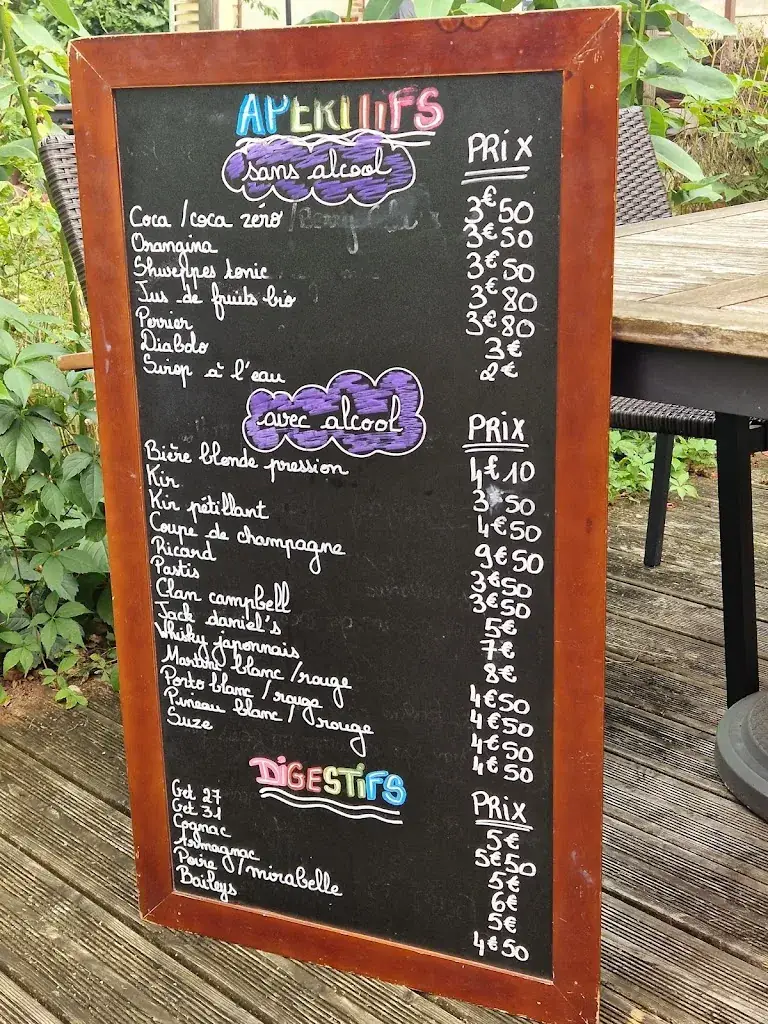 APERITIFS
sans alcool PRIX
Coca / coca zéro 3€50
Orangina 3€50
Shweppes tonic 3€50
Jus de fruits bio 3€80
Perrier 3€80
Diabolo 3€
Sirop à l'eau 2€
avec alcool PRIX
Bière blonde pression 4€10
Kir 3€50
Kir pétillant 4€50
Coupe de champagne 9€50
Ricard 3€50
Pastis 3€50
Clan campbell 5€
Jack daniel's 7€
Whisky japonnais 8€
Martini blanc / rouge 4€50
Porto blanc / rouge 4€50
Pineau blanc / rouge 4€50
Suze 4€50
DIGESTIFS PRIX
Get 27 5€
Get 31 5€50
Cognac 5€
Armagnac 6€
Poire / mirabelle 5€
Baileys 4€50